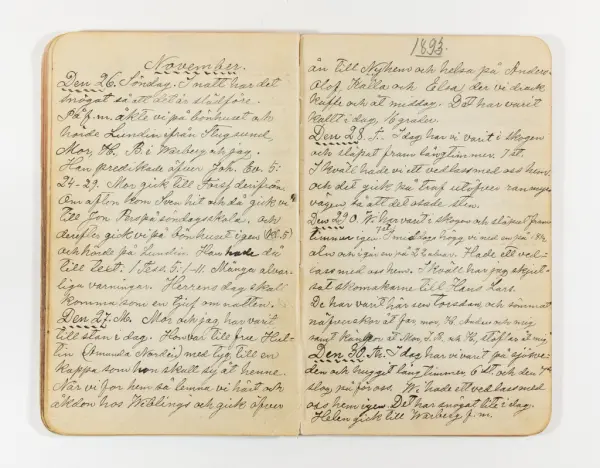 November.
Den 26. Söndag. I natt har det
snögat så att det är slädföre.
På f.m. åkte vi på bönhuset och
hörde Lundin från Slugsund,
Mor, H. B. i Warberg och jag.
Han predikade öfver Joh. Ev. 5:
24-29. Mor gick till Fors derifrån.
Om afton kom Sven hit och då gick vi
till Jon Pers på söndagsskola. och
derefter gick vi på bönhuset igen (kl. 5)
och hörde på Lundin. Han hade då
till text. 1 Tess. 5: 1-11. Många alvar-
liga varningar. Herrens dag skall
komma som en tjuf om natten.
Den 27. M. Mor och jag, har varit
till stan i dag. Hon var till fru Hul-
tin (Amanda Nordin) med tyg, till en
kappa som hon skall sy åt henne.
När vi for hem så lenna vi häst och
åkdon hos Wiblings och gick öfver
1893.
ån till Nyhem och helsa på Anders
Olof, Kalla och Elsa der vi drack
kaffe och åt middag. Det har varit
kallt i dag, 6 grader.
Den 28. T. I dag har vi varit i skogen
och släpat fram långtimmer, 7 st.
I kväll hade vi ett vedlass med oss hem,
och det gick på traf utöfver
vägen, så att det osade sten.
Den 29. O. Wi har varit i skogen och släpat fram
timmer igen. I middags högg vi med en på
aln och i gen en på Hade ett ved-
lass med oss hem. I kväll har jag skjut-
sat skomakarne till Hans Lars.
De har varit här sen torsdag och sömmat
näfverskor åt far, mor, H. Anders och mig
samt kängor åt Mor, S. K. och H, stöflar åt mig
Den 30. Th. I dag har vi varit på
den och huggit långtimmer 6 st. och den 7de
slog på för oss. Wi hade ett vedlass med
oss hem igen. Det har snögat lite i dag.
Helen gick till Warberg f.m.